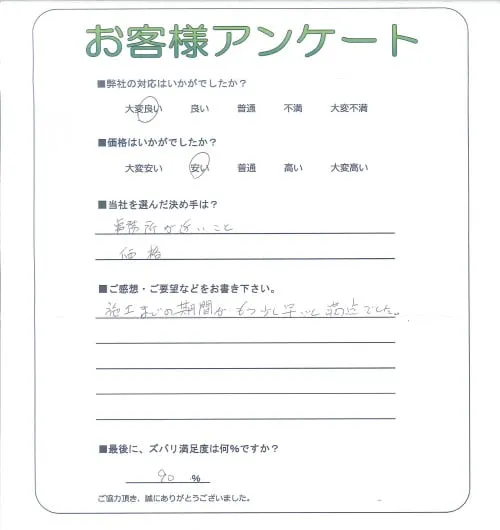 お客様アンケート
■弊社の対応はいかがでしたか？
大変良い 良い 普通 不満 大変不満
■価格はいかがでしたか？
大変安い 安い 普通 高い 大変高い
■当社を選んだ決め手は？
事務所が近いこと
価格
■ご感想・ご要望などをお書き下さい。
施工までの期間がもう少し早いと満点でした。
■最後に、ズバリ満足度は何%ですか？
90 %
ご協力頂き、誠にありがとうございました。